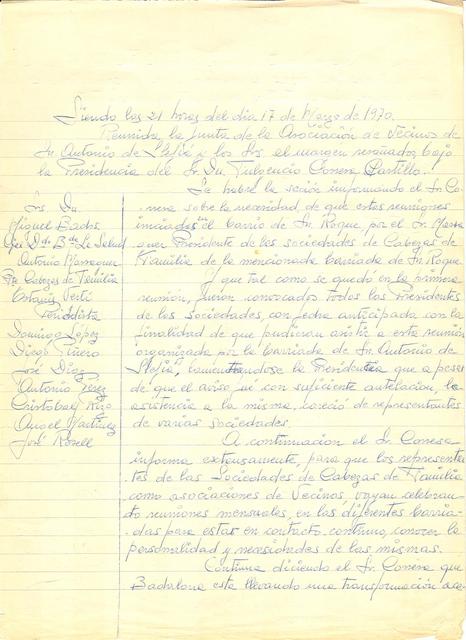 Siendo las 21 horas del dia 17 de Marzo de 1970.
Reunida la Junta de la Asociación de Vecinos de
Sn. Antonio de Llefiá y los Srs. al margen reseñados, bajo
la Presidencia del Sr. Dn. Fulgencio Conesa Castillo.
Se habre la seción informando el Sr. Co-
nesa sobre la necesidad de que estas reuniones
iniciadas en el barrio de Sn. Roque, por el Sr.
Presidente de las sociedades de Cabezas de
Familia de la mencionada barriada de Sn. Roque
Y que tal como se quedó en la primera
reunión, fueron convocados todos los Presidentes
de las sociedades, con fecha anticipada con la
finalidad de que pudieran asistir a esta reunión
organizada por la barriada de Sn. Antonio de
Llefiá, lamentandose la Presidencia que a pesar
de que el aviso fué con suficiente antelación, la
asistencia a la misma, careció de representantes
de varias sociedades.
A continuacion el Sr. Conesa
informa extensamente, para que los representan-
tes de las Sociedades de Cabezas de Familia
como asociaciones de Vecinos, vayan celebran-
do reuniones mensuales, en las diferentes barria-
das para estar en contacto continuo, conocer la
personalidad y necesidades de las mismas.
Continua diciendo el Sr. Conesa que
Badalona esta llevando una transformación ace-
Srs. Dn.
Miguel
Bª. La Salud
Antonio
Pte Cabezas de Familia
Periodista
Domingo López
Diego
José Diaz
Antonio Perez
Cristobal
Angel Martinez
José Rosell